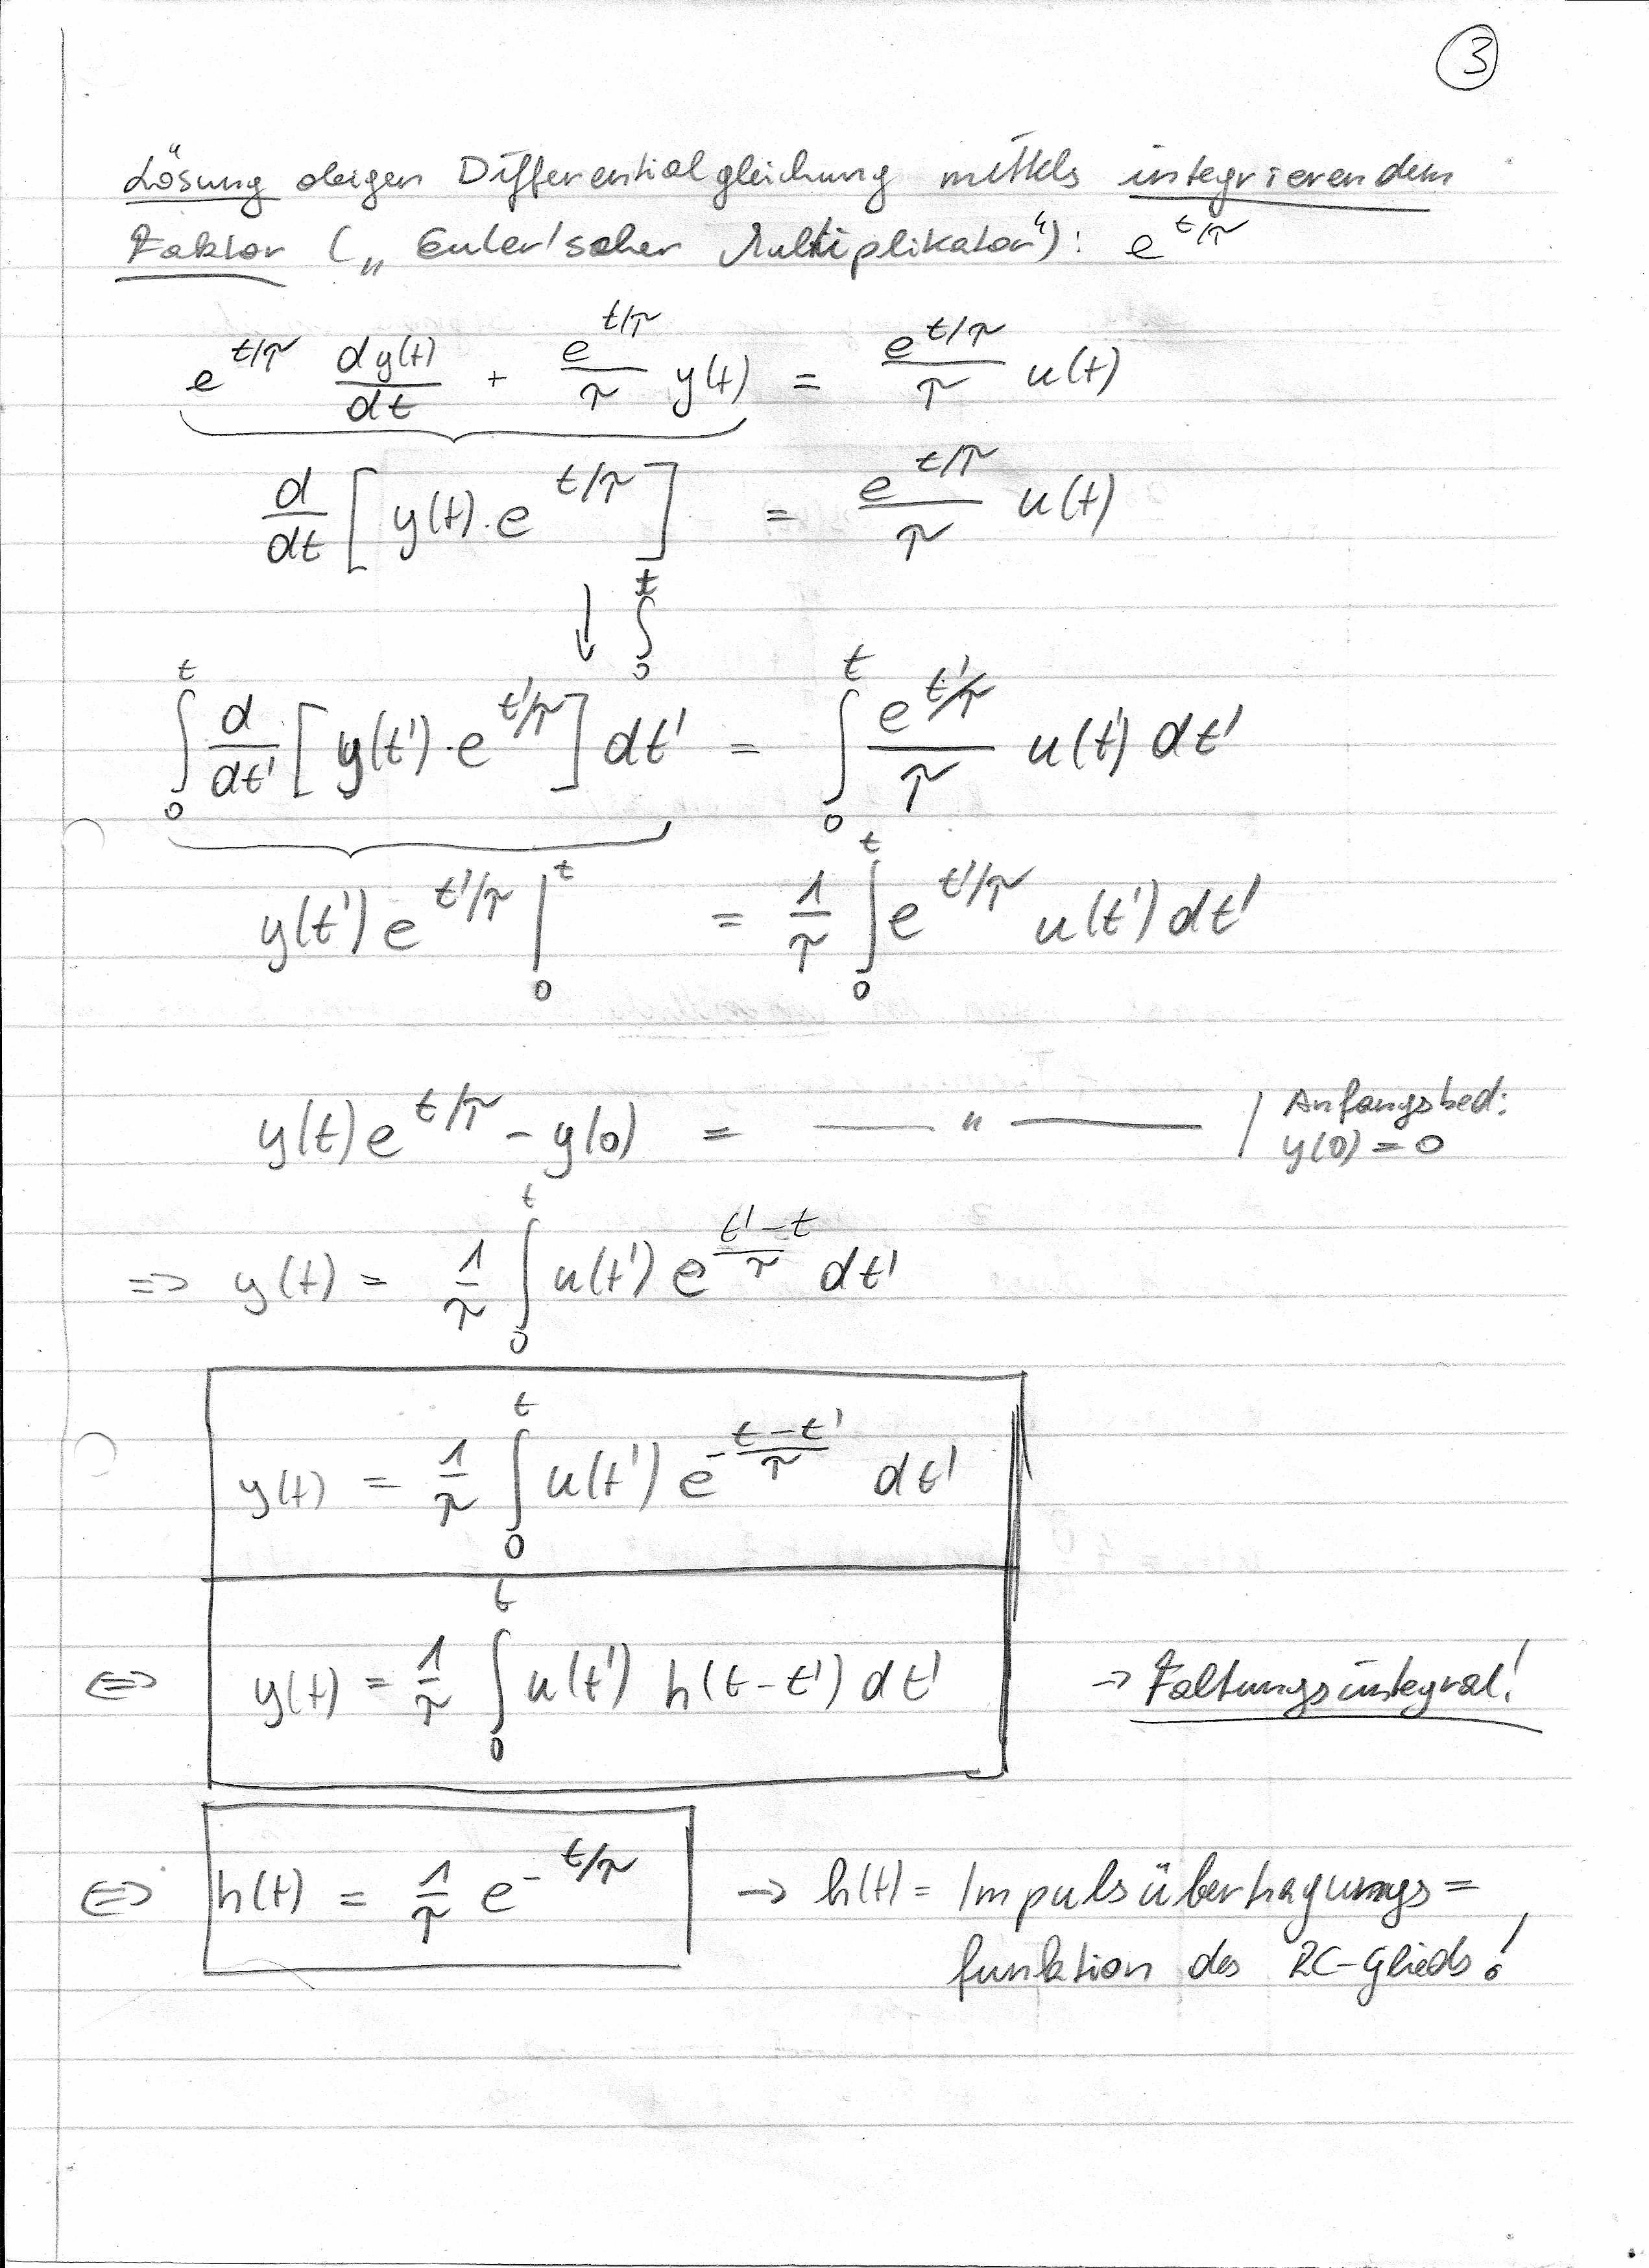 3
Lösung obigen Differentialgleichung mittels integrierendem
Faktor („Euler'scher Multiplikator“): e^{t/τ}
e^{t/τ} dy(t)/dt + e^{t/τ}/τ y(t) = e^{t/τ}/τ u(t)
d/dt [y(t)·e^{t/τ}] = e^{t/τ}/τ u(t)
↓ ∫_0^t
∫_0^t d/dt' [y(t')·e^{t'/τ}] dt' = ∫_0^t e^{t'/τ}/τ u(t') dt'
y(t') e^{t'/τ} |_0^t = 1/τ ∫_0^t e^{t'/τ} u(t') dt'
y(t) e^{t/τ} - y(0) = —— " —— | Anfangsbed:
y(0) = 0
=> y(t) = 1/τ ∫_0^t u(t') e^{(t'-t)/τ} dt'
y(t) = 1/τ ∫_0^t u(t') e^{-(t-t')/τ} dt'
<=> y(t) = 1/τ ∫_0^t u(t') h(t-t') dt' → Faltungsintegral!
<=> h(t) = 1/τ e^{-t/τ} → h(t) = Impulsübertragungs=
funktion des RC-Glieds!